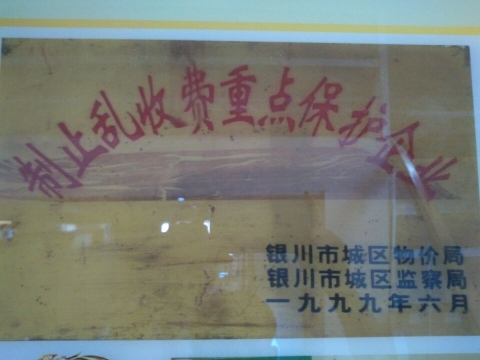 制止乱收费重点保护企业
银川市城区物价局
银川市城区监察局
一九九九年六月